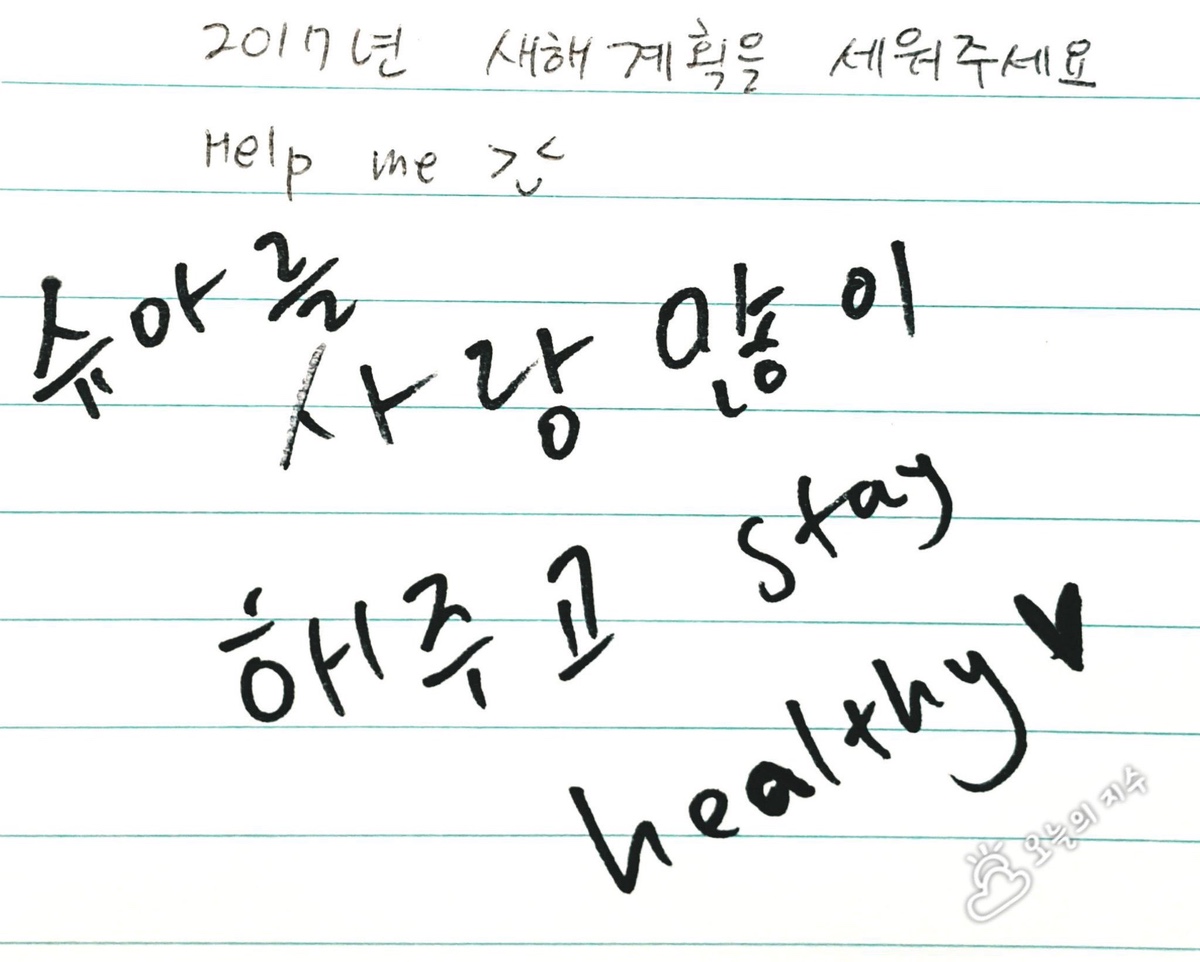 2017년 새해계획을 세워주세요
Help me
슈아를
사랑 많이
해주고 stay
healthy ♥
오늘의 지수